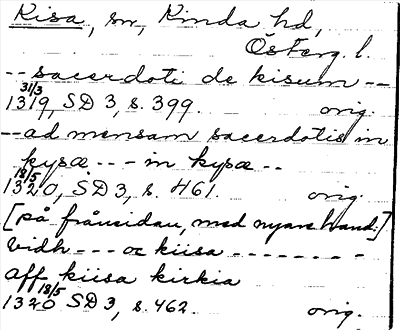 Kisa, sn, Kinda hd,
Österg. l.
-- sacerdoti de kisum --
31/3
1319, SD 3, s. 399. orig.
-- ad mensam sacerdotis in
kysæ --- in kysæ --
18/5
1320, SD 3, s. 461. orig.
[på frånsidan, med nyare hand:]
vidh --- oc kiisa --------
aff kiisa kirkia
18/5
1320 SD 3, s. 462. orig.